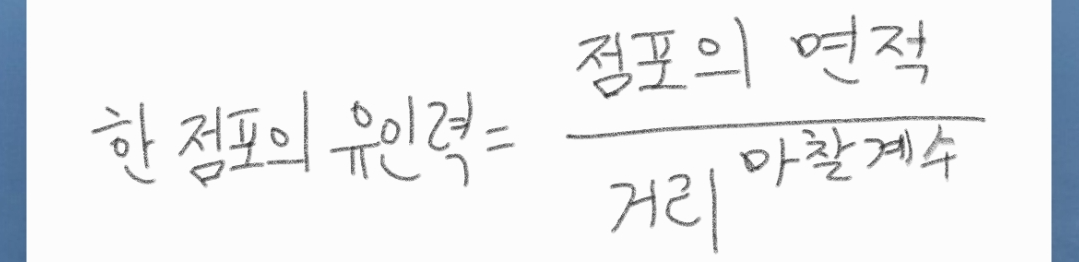 한 점포의 유인력 = 점포의 면적
거리 마찰계수